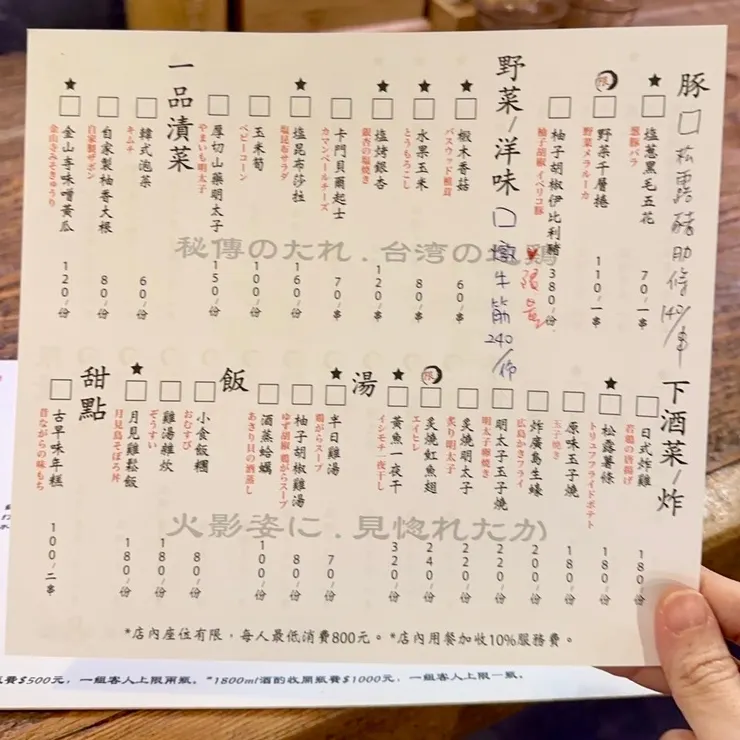 豚
□ 松露豬肋條 140/串
★ □ 塩蔥黑毛五花 70/一串
葱豚バラ
限 □ 野菜千層捲 110/一串
野菜メラルーカ
□ 柚子胡椒伊比利豬 380/份
柚子胡椒 イベリコ豚
限量
野菜/洋味
□ 燉牛筋 240/份
★ □ 椴木香菇 60/串
バスウッド椎茸
★ □ 水果玉米 80/串
とうもろこし
★ □ 塩烤銀杏 120/串
銀杏の塩焼き
□ 卡門貝爾起士 70/串
カマンベールチーズ
★ □ 塩昆布莎拉 160/份
塩昆あサラダ
□ 玉米筍 100/份
ベビーコーン
□ 厚切山藥明太子 150/份
やまいも明太子
一品漬菜
□ 韓式泡菜 60/份
キムチ
□ 自家製柚香大根 80/份
自家製ザボン
★ □ 金山寺味噌黃瓜 120/份
金山寺みそきゅうり
秘傳のたれ.台湾の地鶏
下酒菜/炸
□ 日式炸雞 180/份
若鶏の唐揚げ
★ □ 松露薯條 180/份
トリュフフライドポテト
□ 原味玉子燒 180/份
玉子焼き
□ 炸廣島生蠔 200/份
広島かきフライ
□ 明太子玉子燒 220/份
明太子卵焼き
□ 炙燒明太子 220/份
炙り明太子
限 □ 炙燒魟魚翅 240/份
エイヒレ
★ □ 黃魚一夜干 320/份
イシモチ一夜干し
湯
★ □ 半日雞湯 70/份
鶏がらスープ
□ 柚子胡椒雞湯 80/份
ゆず胡椒 鶏がらスープ
□ 酒蒸蛤蠣 100/份
あさり貝の酒蒸し
飯
□ 小食飯糰 80/份
おむすび
□ 雞湯雜炊 180/份
ぞうすい
★ □ 月見雞鬆飯 180/份
月見鳥そぼろ丼
甜點
□ 古早味年糕 100/二串
昔ながらの味もち
火影姿に.見惚れたか
*店內座位有限，每人最低消費800元。*店內用餐加收10%服務費。
費$500元，一組客人上限兩瓶。*1800ml酒酌收開瓶費$1000元，一組客人上限一瓶。